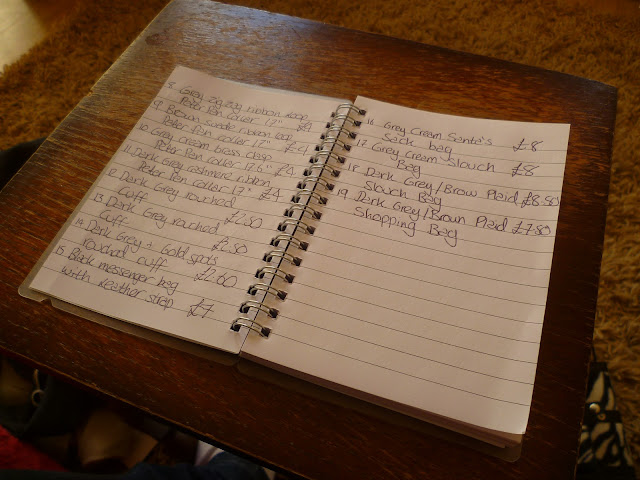 8 Grey zig zag ribbon loop
Peter Pen coller 17" £4
9 Brown suede ribbon loop
Peter Pen coller 17" £4
10 Grey cream brass clasp
Peter Pen coller 17.6" £4
11 Dark Grey cashmere ribbon
Peter Pen coller 17" £4
12 Dark Grey rouched
Cuff £2.50
13 Dark Grey rouched
Cuff £2.50
14 Dark Grey + Gold spots
rouched cuff £2.60
15 Black messenger bag
with leather strap £7
16 Grey Cream Santa's £8
Sack bag
17 Grey Cream slouch £8
Bag
18 Dark Grey/Brow Plaid £8.50
Slouch Bag
19 Dark Grey/Brown Plaid £7.50
Shopping Bag